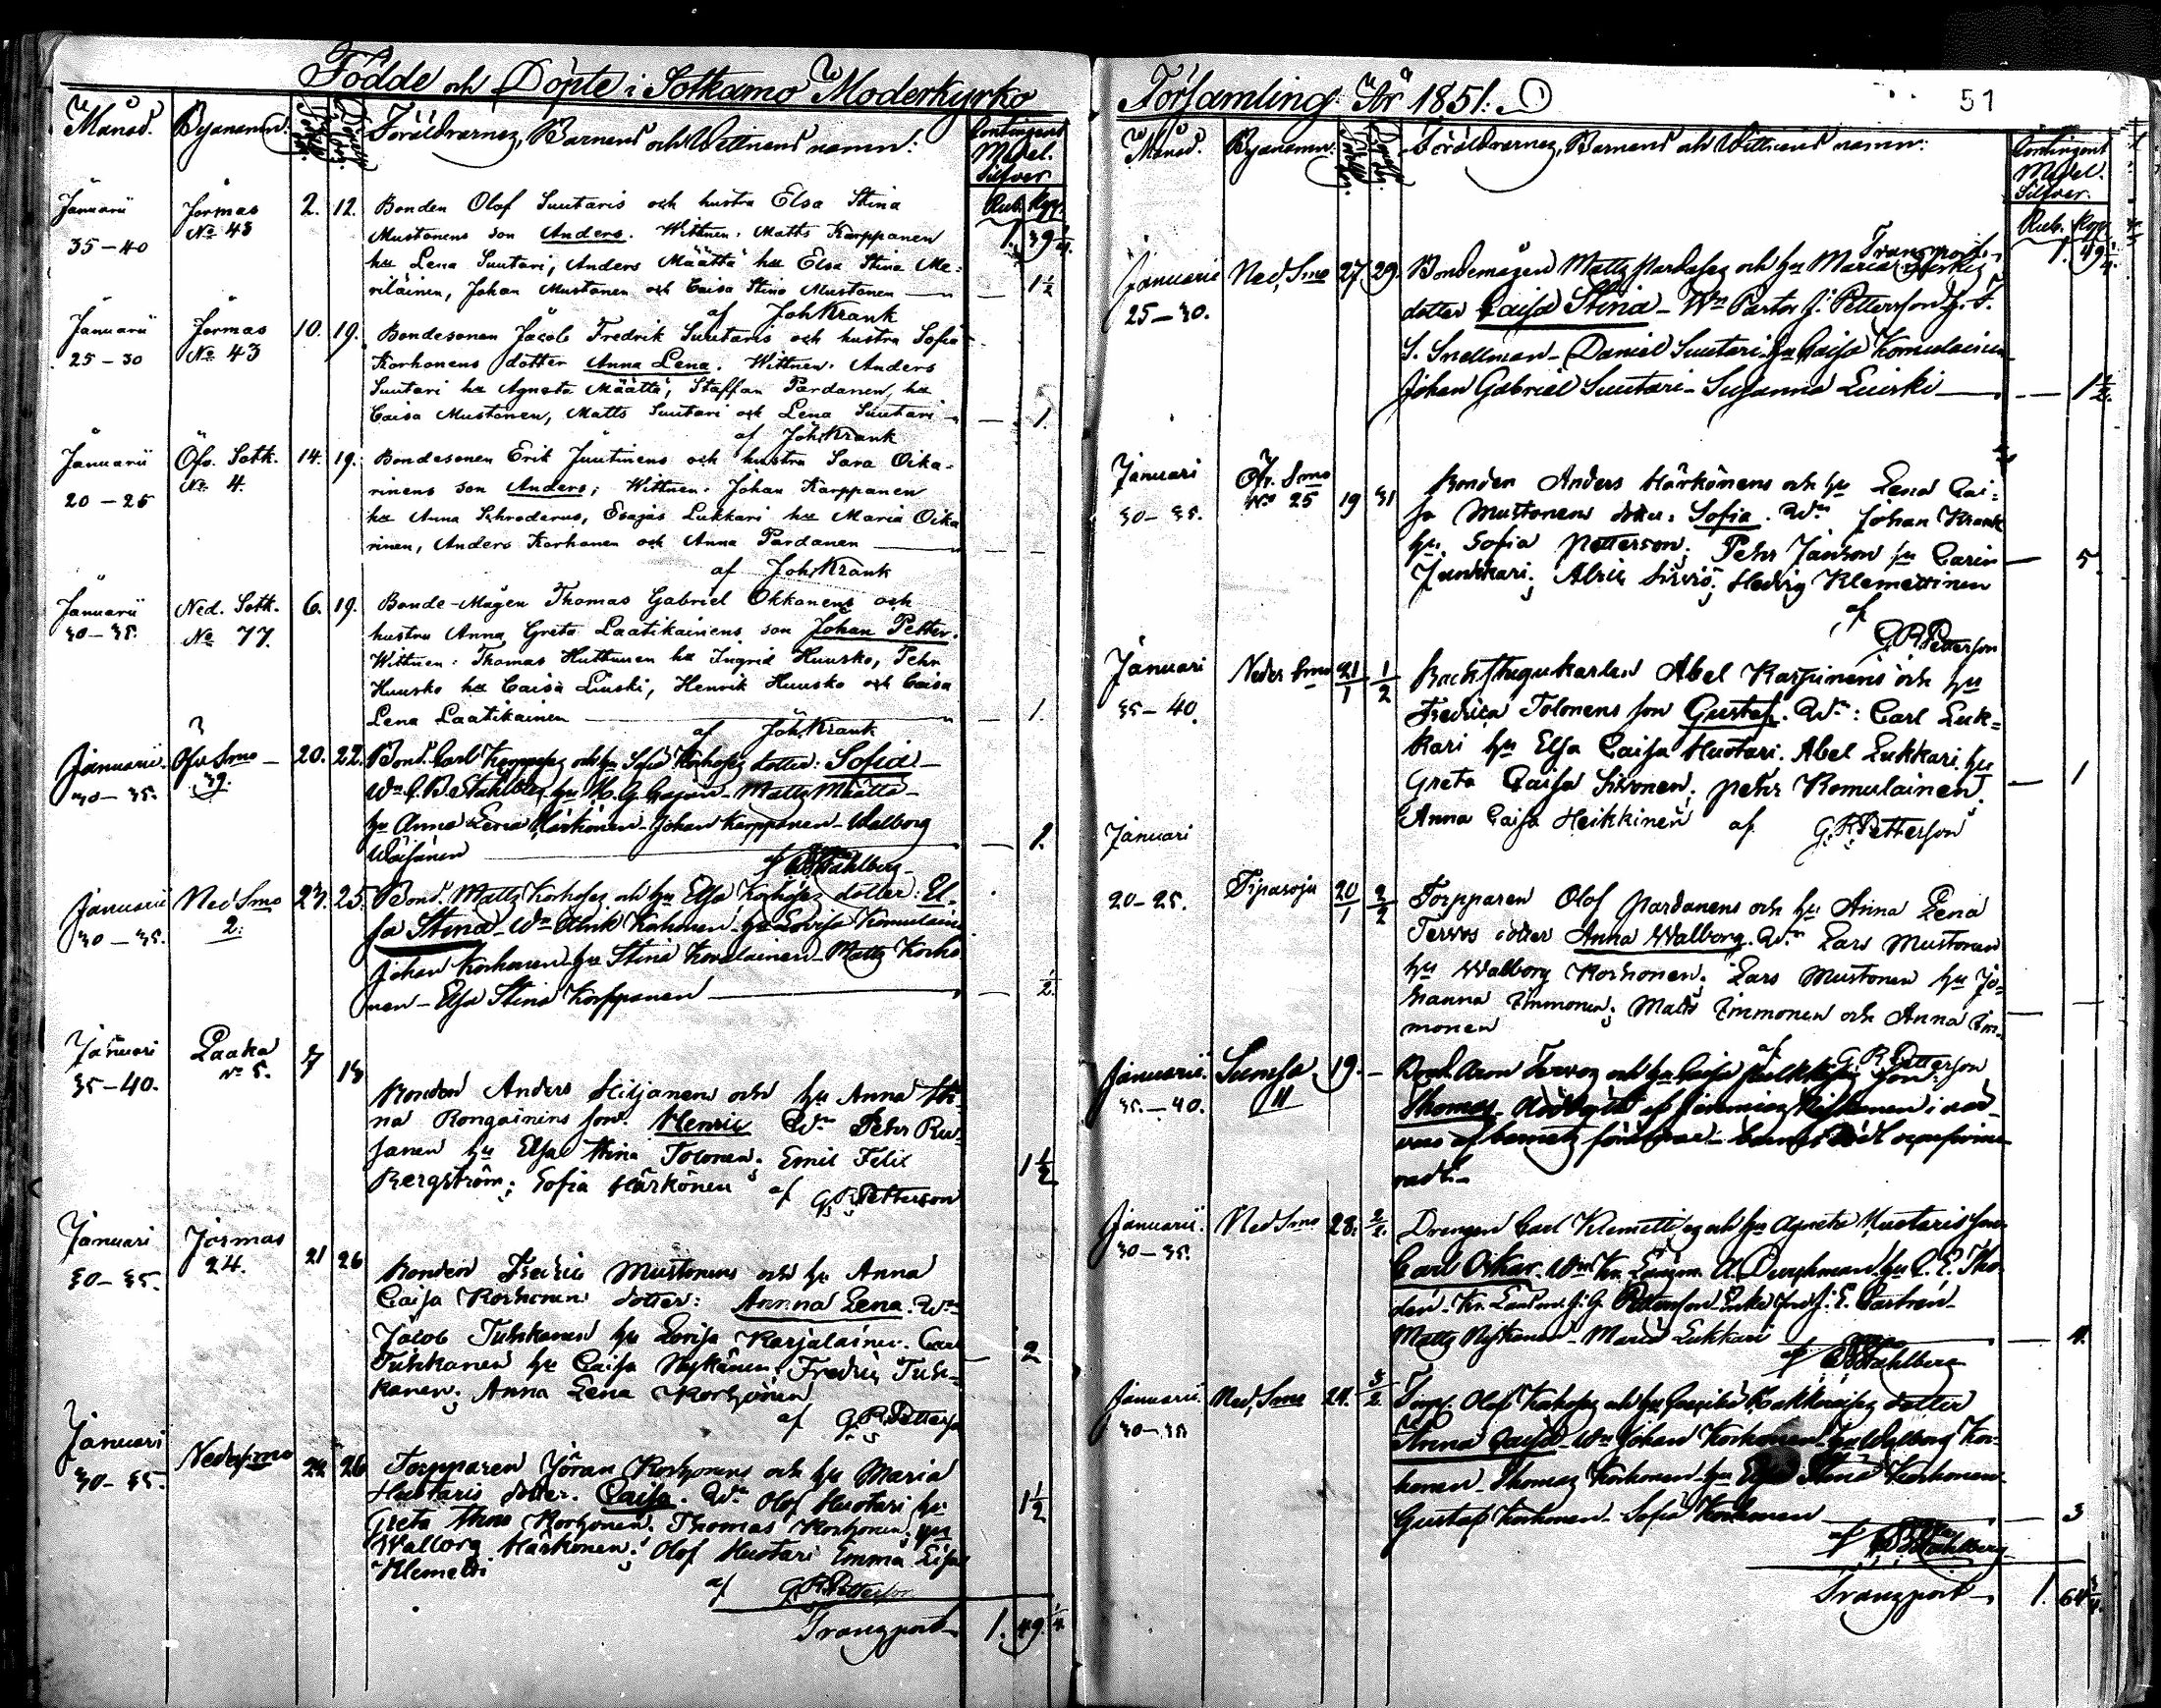 Födde och Döpte i Sotkamo Moderkyrko
Månad. Byanamn. Föräldrarnes, Barnens och Wittnens namn: Contingent
Medel.
Silfver.
Rub. Kop.
1. 39 1/4
Januarii Jormas 2. 12. Bonden Olof Suutaris och hustru Elsa Stina
35-40 No 43 Mustonens son Anders. Wittnen: Matts Karppanen
hu Lena Suutari, Anders Määttä hu Elsa Stina Me=
riläinen, Johan Mustonen och Caisa Stina Mustonen — 1 1/2
af Joh. Krank
Januarii Jormas 10. 19. Bondesonen Jacob Fredrik Suutaris och hustru Sofia
25-30 No 43 Korhonens dotter Anna Lena. Wittnen: Anders
Suutari hu Agneta Määttä, Staffan Pardanen, hu
Caisa Mustonen, Matts Suutari och Lena Suutari — 1.
af Joh. Krank
Januarii Öfv. Sotk. 14. 19. Bondesonen Erik Juutinens och hustru Sara Oika-
20-25 No 4. rinens son Anders; Wittnen: Johan Karppanen
hu Anna Schroderus, Esajas Lukkari hu Maria Oika
rinen, Anders Korhonen och Anna Pardanen —
af Joh. Krank
Januarii Ned. Sotk. 6. 19. Bonde-Mågen Thomas Gabriel Okkonens och
30-35. No 77. hustru Anna Greta Laatikainens son Johan Petter.
Wittnen: Thomas Huttunen hu Ingrid Huusko, Pehr
Huusko hu Caisa Liuski, Henrik Huusko och Caisa
Lena Laatikainen — 1.
af Joh. Krank
Januarii. Öfv Smo 20. 22. Bond. Carl och hu Sofia Korhoses dotter: Sofia —
30-35. 39. Wn C. B. Ståhlberg hu H. G. Cajan — Matts Määttä —
hu Anna Lena Härkönen — Johan Karppanen — Walborg
Wäisänen — 1.
af Ståhlberg
Januarii Ned Smo 23. 25. Bond. Matts Korhoses och hu Elsa Korhoses dotter: El-
30-35. 2. sa Stina — Wn Henk Korhonen — hu Lovisa Komulain
Johan Korhonen hu Stina Kovalainen — Matts Korho
nen — Elsa Stina Korppanen — 1/2.
Januari Laaka 7 13 Bonden Anders Hiljanens och hu Anna Sti=
35-40. No 5. na Rongainens son. Henric Wn Pehr Ru=
sanen hu Elsa Stina Tolonen; Emil Felix 1 1/2
Bergström; Sofia Härkönen af G. R. Petterson
Januari Jormas 21 26 Bonden Fredric Mustonens och hu Anna
30-35. 24. Caisa Korhonens dotter: Annna Lena. Wn
Jacob Tuhkanen hu Lovisa Karjalainen. Carl
Tuhkanen hu Caisa Nykänen; Fredric Tuh= 2
kanen; Anna Lena Korhonen
af G. R. Petterson
Januari Neder Smo 24 26 Torpparen Jöran Korhonens och hu Maria
30-35. Huotaris dotter. Caisa. Wn Olof Huotari hu 1 1/2
Greta Korhonen. Thomas Korhonen; hu
Walborg Härkönen; Olof Huotari Emma Lisa
Klemetti
af G. R. Petterson
Transport 1. 49 1/4
Församling År 1851.
51
Månad. Byanamn. Föräldrarnes, Barnens och Wittnens namn: Contingent
Medel.
Silfver.
Rub. Kop.
Transport 1. 49 1/4.
Januarii Ned. Smo 27. 29. Bondemågen Matts Pardases och hu Maria
25-30. dotter Caisa Stina — Wn Pastor J. Petterson
S. Snellman — Daniel Suutari hu Caisa Komulainen
Johan Gabriel Suutari — Susanna Liuski — 1 1/2.
Januari Öfv. Smo 19 31 Bonden Anders Härkönens och hu Lena Cai=
30-35. No 25 sa Mustonens dotter: Sofia. Wn Johan Krank
hu Sofia Petterson; Pehr Janson hu Carin — 5
Junkkari; Alric Sirviö; Hedvig Klemettinen
af
G. R. Petterson
Januari Neder Smo 21/1 1/2 Backstugukarlen Abel Karppinens och hu
35-40. Fredrica Tolonens son Gustaf. Wn: Carl Luk=
kari hu Elsa Caisa Huotari. Abel Lukkari hu
Greta Caisa Sirvonen; Pehr Komulainen — 1
Anna Caisa Heikkinen af G. R. Petterson
Januari
20-25. Tipasoja 20/1 2/2 Torpparen Olof Pardanens och hu Anna Lena
Tervos dotter Anna Walborg. Wn Lars Mustonen
hu Walborg Korhonen; Lars Mustonen hu Jo=
hanna Immonen; Matts Immonen och Anna Im=
monen
af G. R. Petterson
Januarii. Sumsa 19. — Bond. Aron Tervos och hu Caisa son:
35-40. 11 Thomas. Nöddöpt af Jeremias i när-
varo af barnets föräldrar —
Januarii. Ned Smo 28. 2/2. Drengen Carl Klemetti och hu Agneta Huotaris son
30-35. Carl Oskar. Wn Kr. Länsm. A. Durchman. hu C. E. Tho-
den — Kr. Länsm. J. G. Petterson — Enke fru J. E. Castrén —
Matts Nyskanen — Maria Lukkari — 4.
af Ståhlberg
Januarii. Ned. Smo 24. 5/2. Torp. Olof Korhoses och hu dotter
30-35 Anna Caisa — Wn Johan Korhonen — hu Walborg Kor-
honen — Thomas Korhonen — hu Elsa Stina Korhonen
Gustaf Korhonen — Sofia Korhonen — 3
af Ståhlberg
Transport 1. 64 3/4.